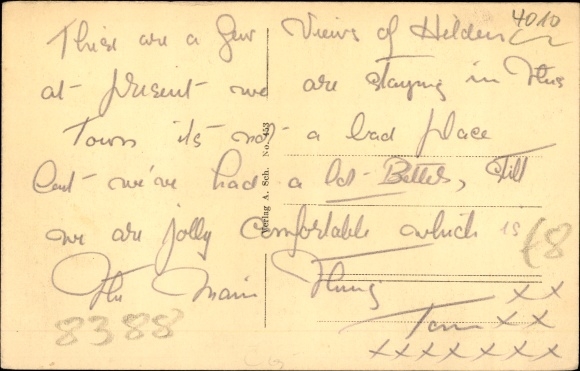 4010
These are a few Views of Hilden
at present we are staying in this
Town its not a bad place
but we've had a lot Better, Still
we are jolly comfortable which is
the main thing
Tom x x
x x
x x x x x x x
8388
£8
Verlag A. Sch. No. 453